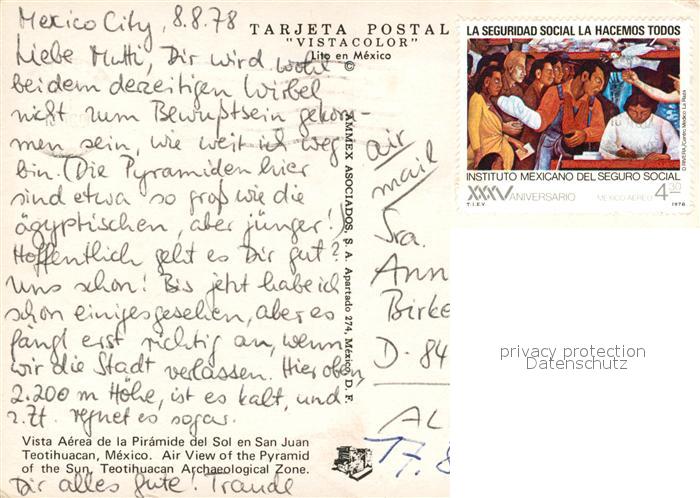 Mexico City, 8.8.78
Liebe Mutti, Dir wird wohl
bei dem derzeitigen Wirbel
nicht zum Bewußtsein gekom-
men sein, wie weit ich weg
bin. (Die Pyramiden hier
sind etwa so groß wie die
ägyptischen, aber jünger!)
Hoffentlich geht es Dir gut?
Uns schon! Bis jetzt habe ich
schon einiges gesehen, aber es
fängt erst richtig an, wenn
wir die Stadt verlassen. Hier oben,
2.200 m Höhe, ist es kalt, und
z.Zt. regnet es sogar.
Vista Aérea de la Pirámide del Sol en San Juan
Teotihuacan, México. Air View of the Pyramid
of the Sun, Teotihuacan Archaeological Zone.
Dir alles gute! Traudl
TARJETA POSTAL
"VISTACOLOR"
Lito en México
©
AMMEX ASOCIADOS, S. A. Apartado 274, México, D. F.
air
mail
Sra.
Ann
Birke
D-84
AL
17.8
LA SEGURIDAD SOCIAL LA HACEMOS TODOS
INSTITUTO MEXICANO DEL SEGURO SOCIAL
XXXV ANIVERSARIO MEXICO AEREO 4.30
T.I.E.V. 1978
privacy protection
Datenschutz